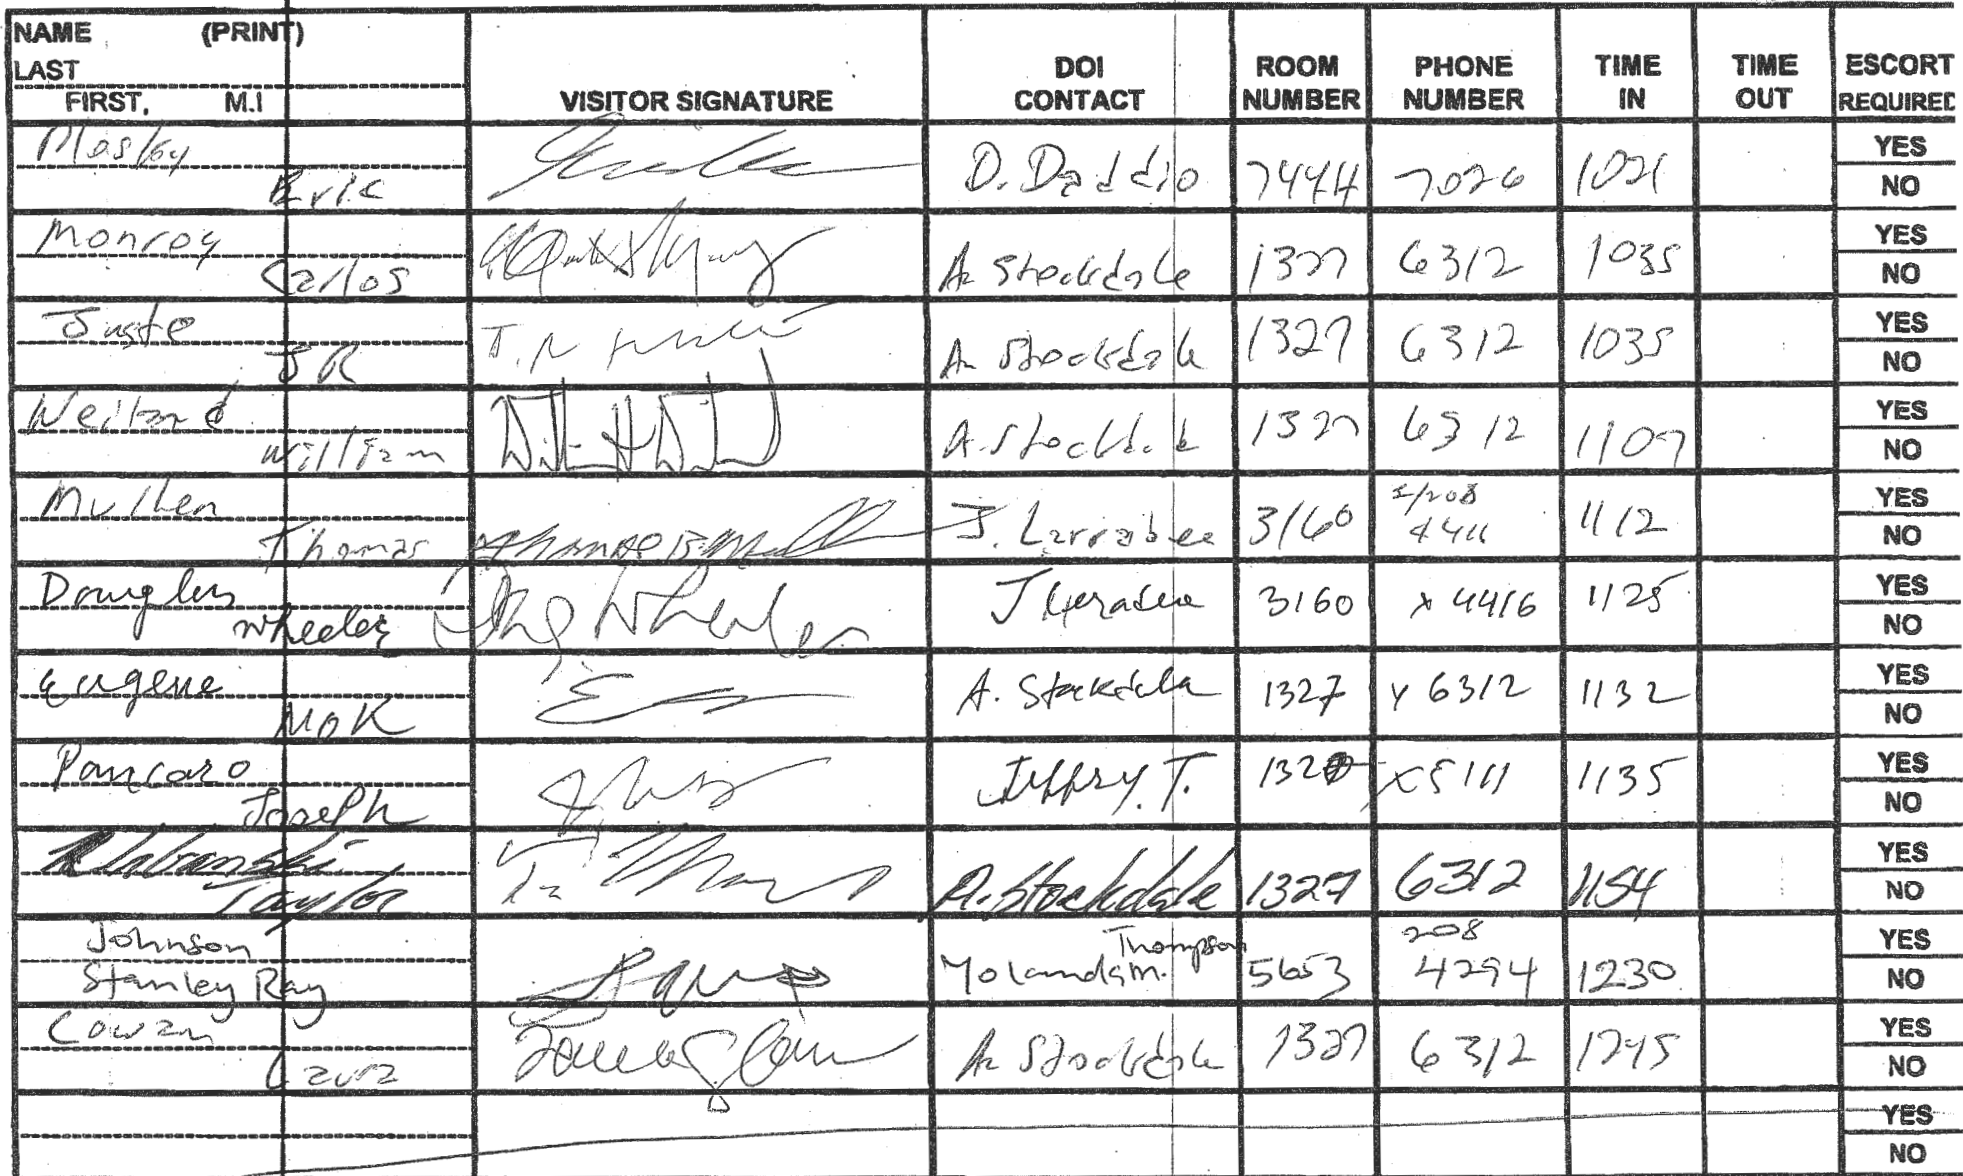 NAME (PRINT)
LAST
FIRST, M.I
VISITOR SIGNATURE
DOI CONTACT
ROOM NUMBER
PHONE NUMBER
TIME IN
TIME OUT
ESCORT REQUIRED
Mosley
Eric D. Daddio 7444 7026 1021 YES NO
Monroy
Carlos A. Stockdale 1327 6312 1035 YES NO
Juste
JR A. Stockdale 1327 6312 1035 YES NO
Weiland
William A. Stockdale 1327 6312 1107 YES NO
Mullen
Thomas J. Larrabee 3160 4411 1112 YES NO
Douglas
Wheeler 3160 x 4416 1125 YES NO
Eugene
Mok A. Stockdale 1327 x 6312 1132 YES NO
Pancaro
Joseph Jeffry. T. x5111 1135 YES NO
Taylor A. Stockdale 1327 6312 1154 YES NO
Johnson
Stanley Ray Yolanda M. Thompson 5653 208 4294 1230 YES NO
Cowan
Laura A. Stockdale 1327 6312 1245 YES NO
YES
NO